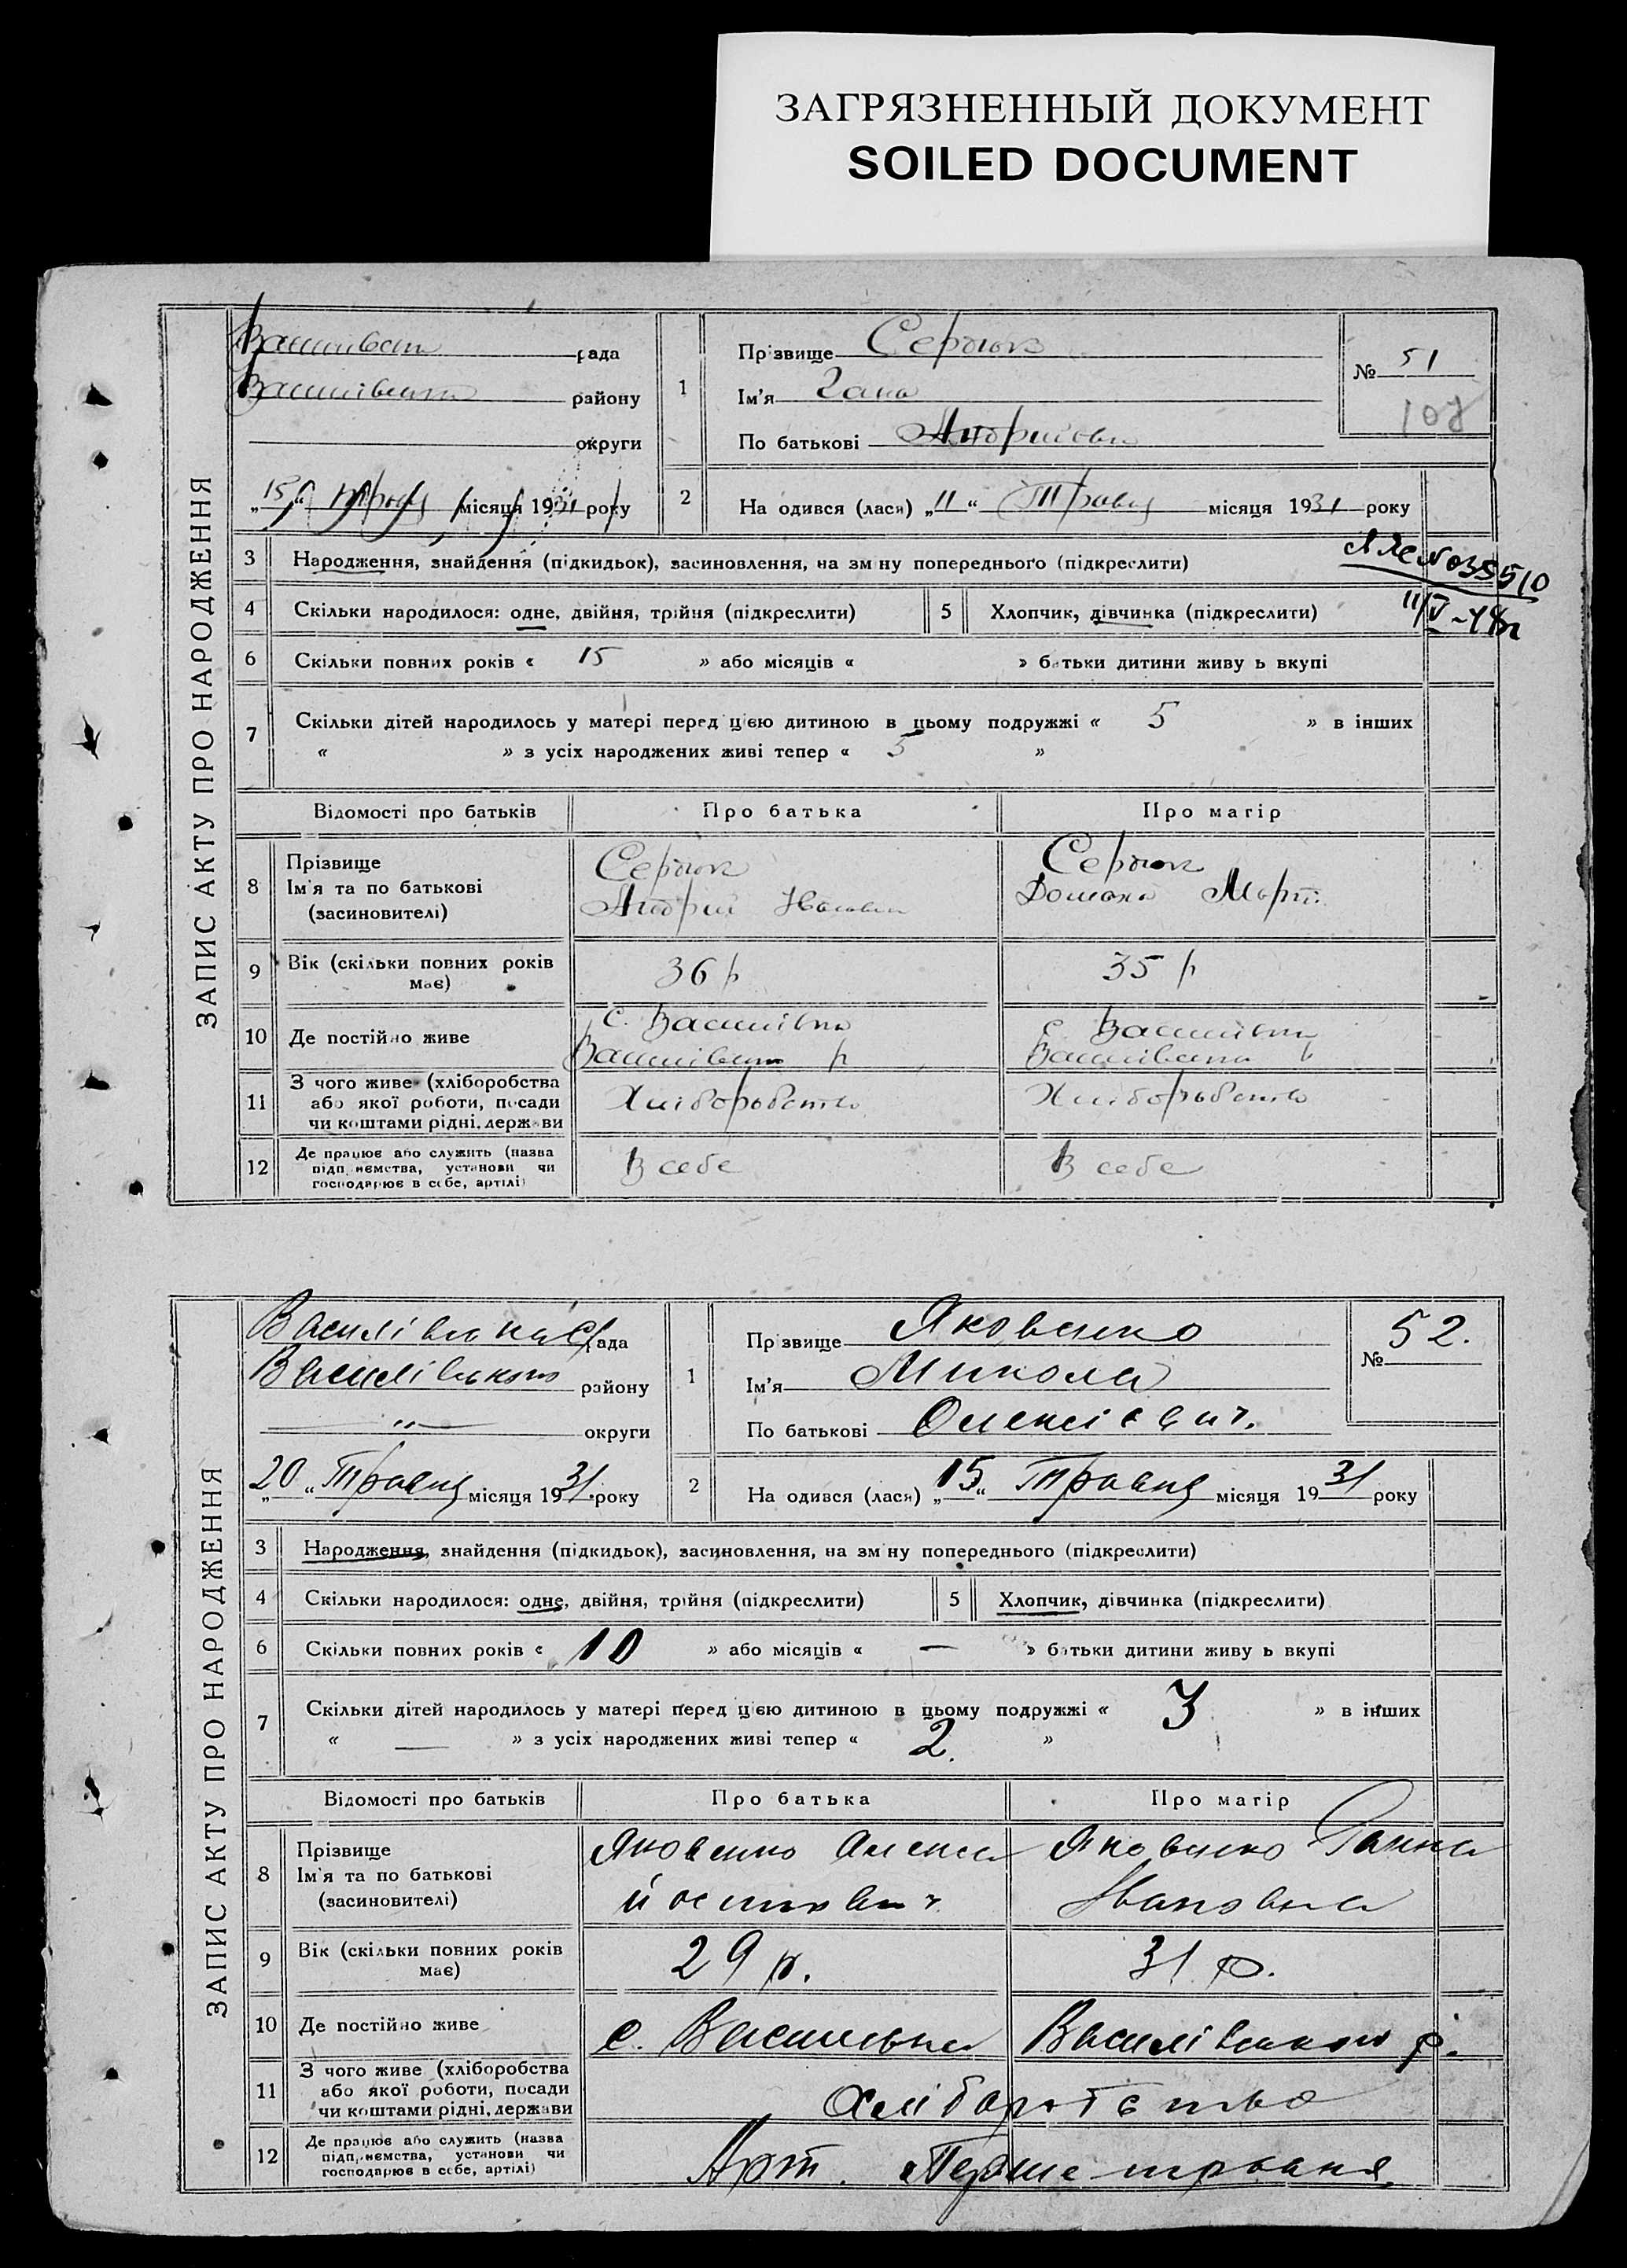 ЗАГРЯЗНЕННЫЙ ДОКУМЕНТ
SOILED DOCUMENT
ЗАПИС АКТУ ПРО НАРОДЖЕННЯ
рада
району
округи
15 травня місяця 1931 року
1
Прізвище Сердюк
Ім'я Гана
По батькові Андрийовна
№ 51
107
2
На одився (лася) „11“ Травня місяця 1931 року
3 Народження, знайдення (підкидьок), засиновлення, на зм ну попереднього (підкреслити)
035510
11/V-48г
4 Скільки народилося: одне, двійня, трійня (підкреслити) 5 Хлопчик, дівчинка (підкреслити)
6 Скільки повних років « 15 » або місяців « » батьки дитини живу ь вкупі
7 Скільки дітей народилось у матері перед цією дитиною в цьому подружжі « 5 » в інших
« » з усіх народжених живі тепер « 5 »
Відомості про батьків Про батька Про матір
8 Прізвище
Ім'я та по батькові
(засиновителі)
Сердюк
Андрий Іванович
Сердюк
Домаха Март.
9 Вік (скільки повних років має) 36 р 35 р
10 Де постійно живе
с. Василівка
р
с. Василівка
р
11 З чого живе (хліборобства
або якої роботи, посади
чи коштами рідні, держави
Хліборобство Хліборобство
12 Де працює або служить (назва
підприємства, установи чи
господарює в себе, артілі)
В себе В себе
ЗАПИС АКТУ ПРО НАРОДЖЕННЯ
Василівська рада
Василівського району
—〃— округи
„20“ Травня місяця 1931 року
1
Прізвище Яковенко
Ім'я Микола
По батькові Олексієвич.
№ 52.
2
На одився (лася) „15“ Травня місяця 1931 року
3 Народження, знайдення (підкидьок), засиновлення, на зм ну попереднього (підкреслити)
4 Скільки народилося: одне, двійня, трійня (підкреслити) 5 Хлопчик, дівчинка (підкреслити)
6 Скільки повних років « 10 » або місяців « — » батьки дитини живу ь вкупі
7 Скільки дітей народилось у матері перед цією дитиною в цьому подружжі « 3 » в інших
« — » з усіх народжених живі тепер « 2. »
Відомості про батьків Про батька Про матір
8 Прізвище
Ім'я та по батькові
(засиновителі)
Яковенко Олекса
Йосипович
Яковенко Ганна
Івановна
9 Вік (скільки повних років має) 29 р. 31 р.
10 Де постійно живе с. Василівка Василівського р.
11 З чого живе (хліборобства
або якої роботи, посади
чи коштами рідні, держави
Хліборобство
12 Де працює або служить (назва
підприємства, установи чи
господарює в себе, артілі)
Арт. Перше травня.